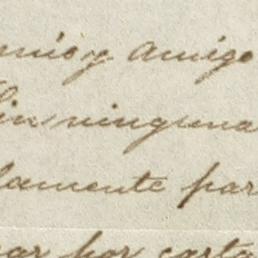 mio y amigo
sin ninguna
lamente par
por carta